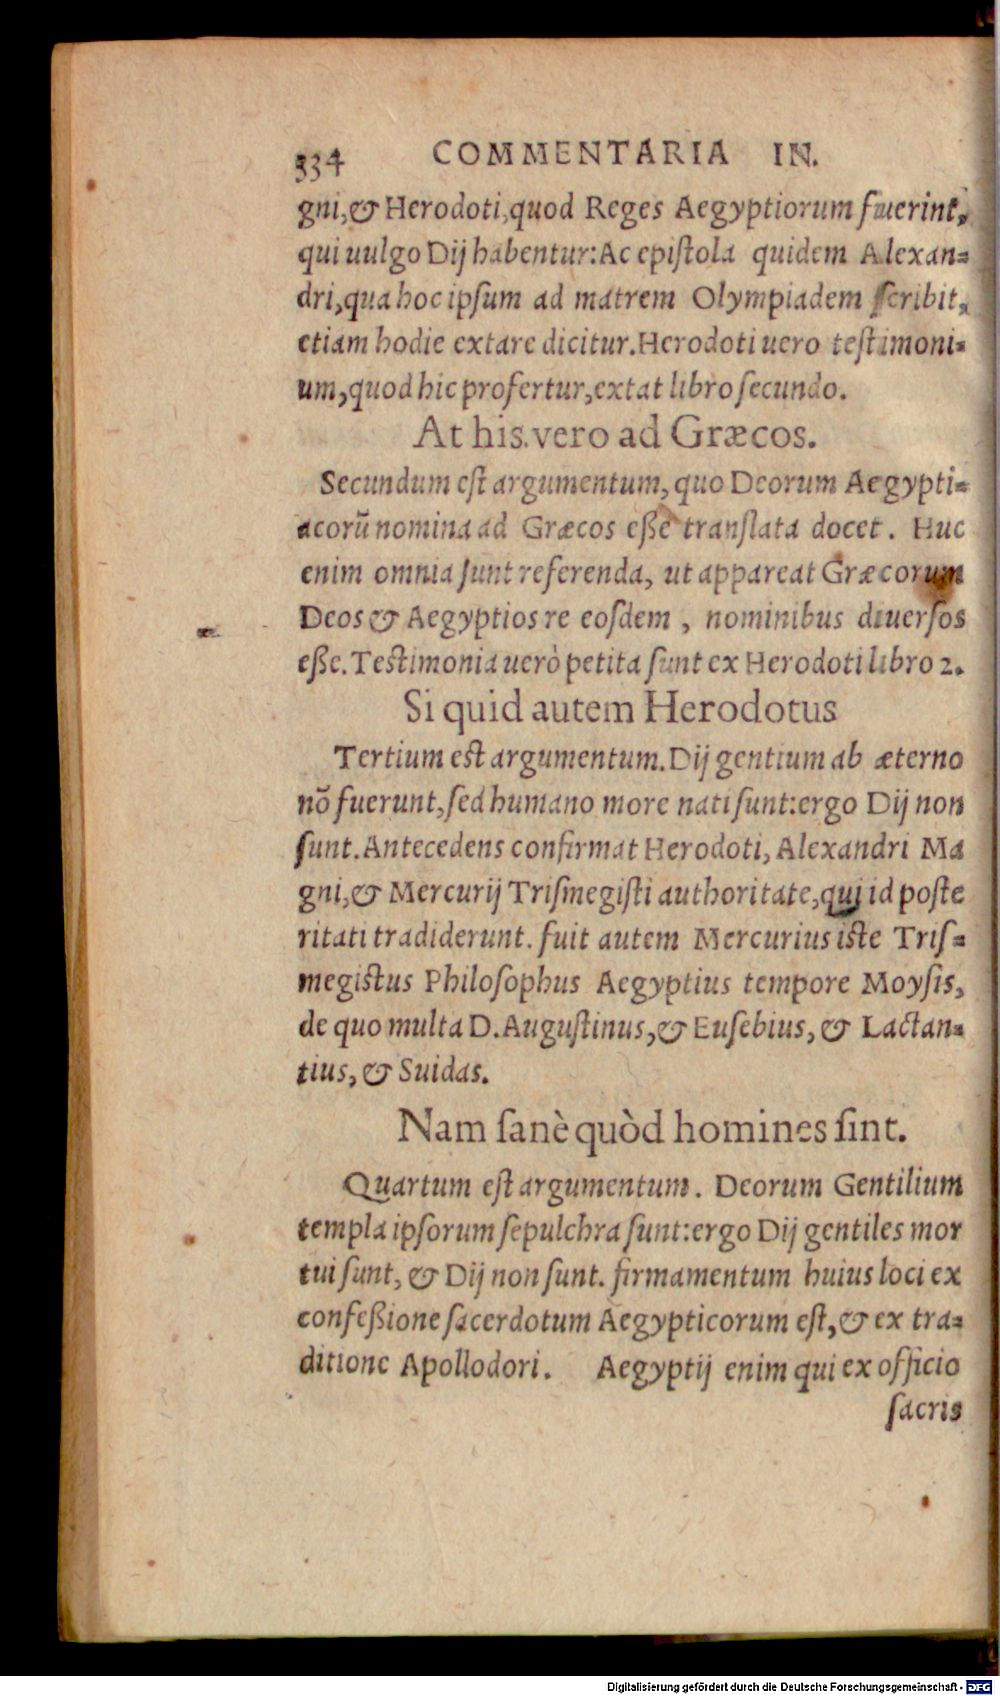 334 COMMENTARIA IN.
gni,& Herodoti,quod Reges Aegyptiorum fuerint,
qui uulgo Dij habentur:Ac epiſtola quidem Alexan=
dri,qua hoc ipſum ad matrem Olympiadem ſcribit,
etiam hodie extare dicitur.Herodoti uero teſtimoni=
um,quod hic profertur,extat libro ſecundo.
At his.vero ad Græcos.
Secundum eſt argumentum, quo Deorum Aegypti=
acorũ nomina ad Græcos eſſe translata docet. Huc
enim omnia ſunt referenda, ut appareat Græcorum
Deos & Aegyptios re eoſdem, nominibus diuerſos
eſſe. Teſtimonia uerò petita ſunt ex Herodoti libro 2.
Si quid autem Herodotus
Tertium eſt argumentum. Dij gentium ab æterno
nõ fuerunt, ſed humano more nati ſunt:ergo Dij non
ſunt. Antecedens confirmat Herodoti, Alexandri Ma
gni,& Mercurij Triſmegiſti authoritate,qui id poſte
ritati tradiderunt. fuit autem Mercurius iſte Triſ=
megiſtus Philoſophus Aegyptius tempore Moyſis,
de quo multa D. Auguſtinus,& Euſebius, & Lactan=
tius, & Suidas.
Nam ſanè quòd homines ſint.
Quartum eſt argumentum. Deorum Gentilium
templa ipſorum ſepulchra ſunt:ergo Dij gentiles mor
tui ſunt, & Dij non ſunt. firmamentum huius loci ex
confeßione ſacerdotum Aegypticorum eſt,& ex tra=
ditione Apollodori. Aegyptij enim qui ex officio
ſacris
Digitalisierung gefördert durch die Deutsche Forschungsgemeinschaft - DFG